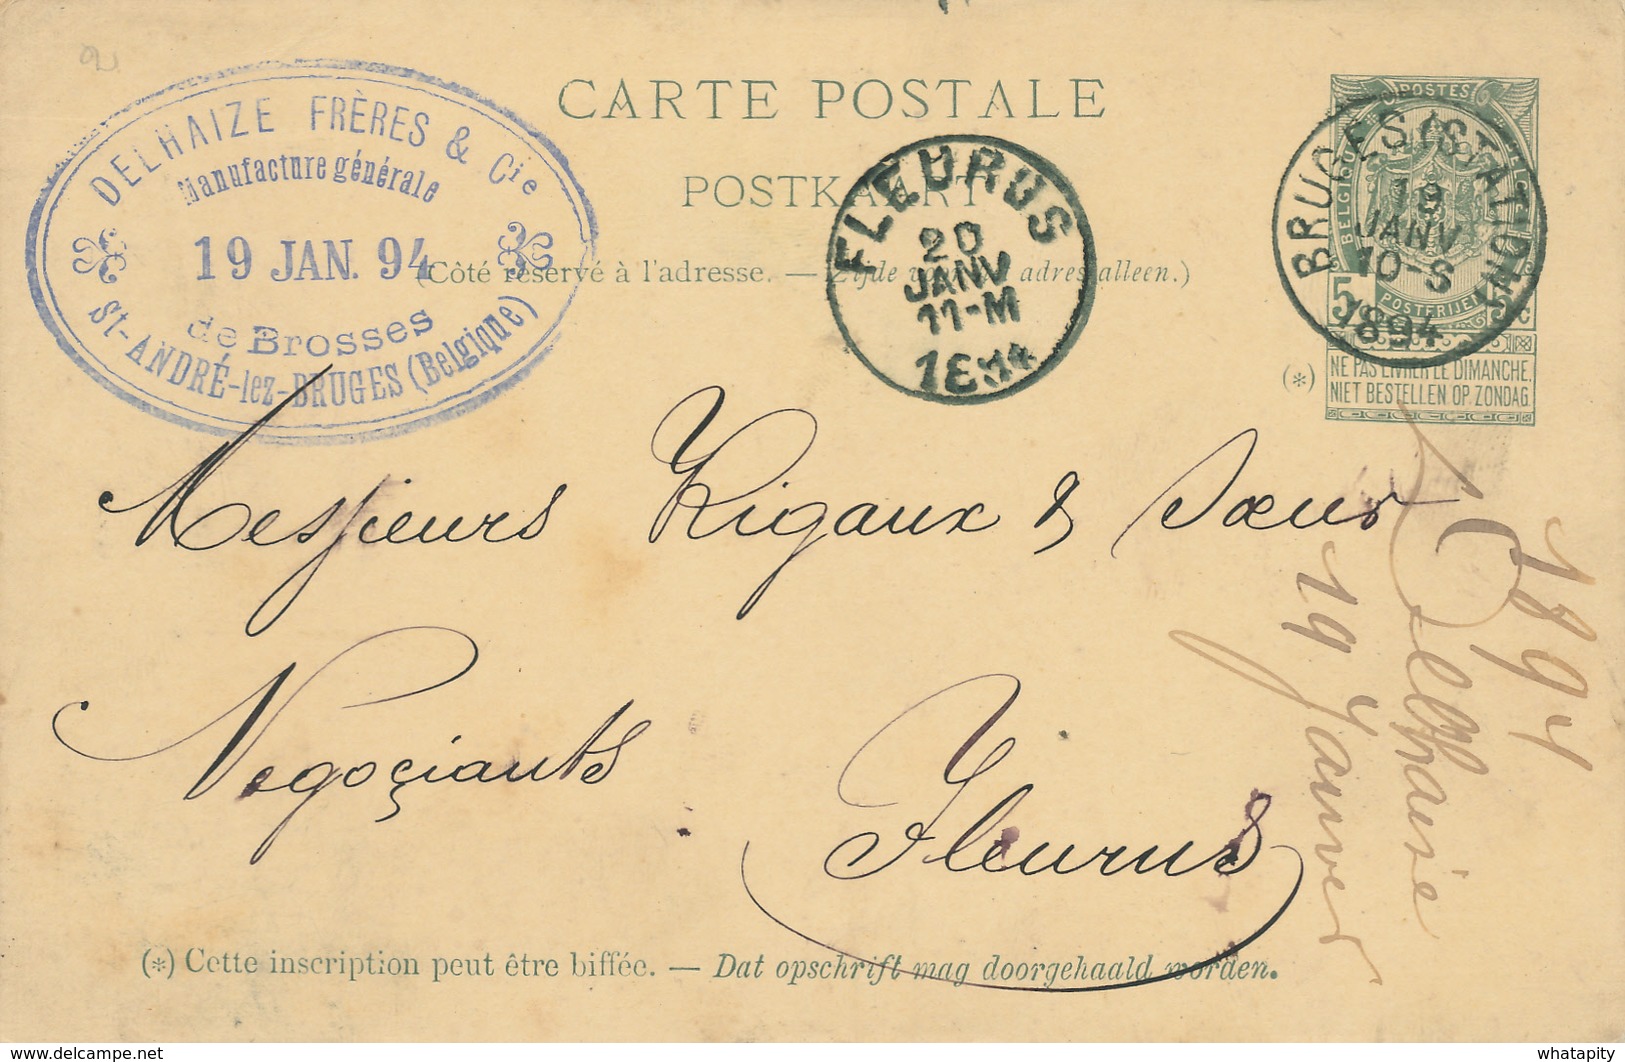 CARTE POSTALE
POSTKAART
(Côté réservé à l'adresse. — Zijde adres alleen.)
DELHAIZE FRÈRES & Cie
Manufacture générale
19 JAN. 94
de Brosses
St-ANDRÉ-lez-BRUGES (Belgique)
FLEURUS
20
JANV
11-M
1894
POSTES
BRUGES (STATION)
19
JANV
10-S
1894
BELGIQUE
5
POSTFRIJEN
5 C
(*) NE PAS LIVRER LE DIMANCHE.
NIET BESTELLEN OP ZONDAG.
Messieurs Rigaux & Sœur
Negoçiants
Fleurus
1894
Delhaise
19 Janver
(*) Cette inscription peut être biffée. — Dat opschrift mag doorgehaald worden.
delcampe.net
whatapity